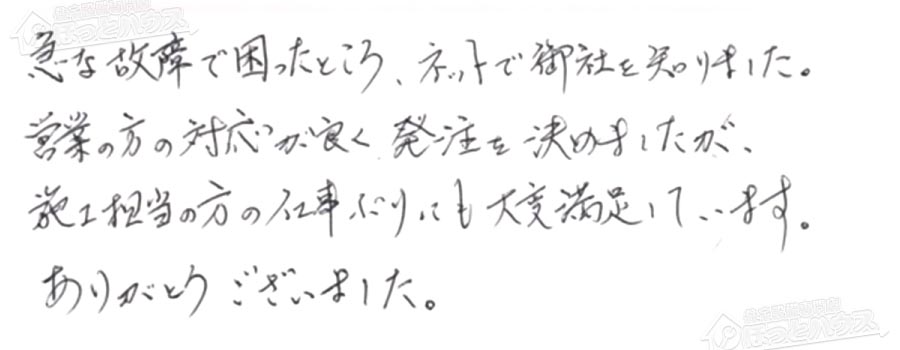 急な故障で困ったところ、ネットで御社を知りました。
営業の方の対応が良く発注を決めましたが、
施工担当の方の仕事ぶりにも大変満足しています。
ありがとうございました。
ほっとハウス
ほっとハウス